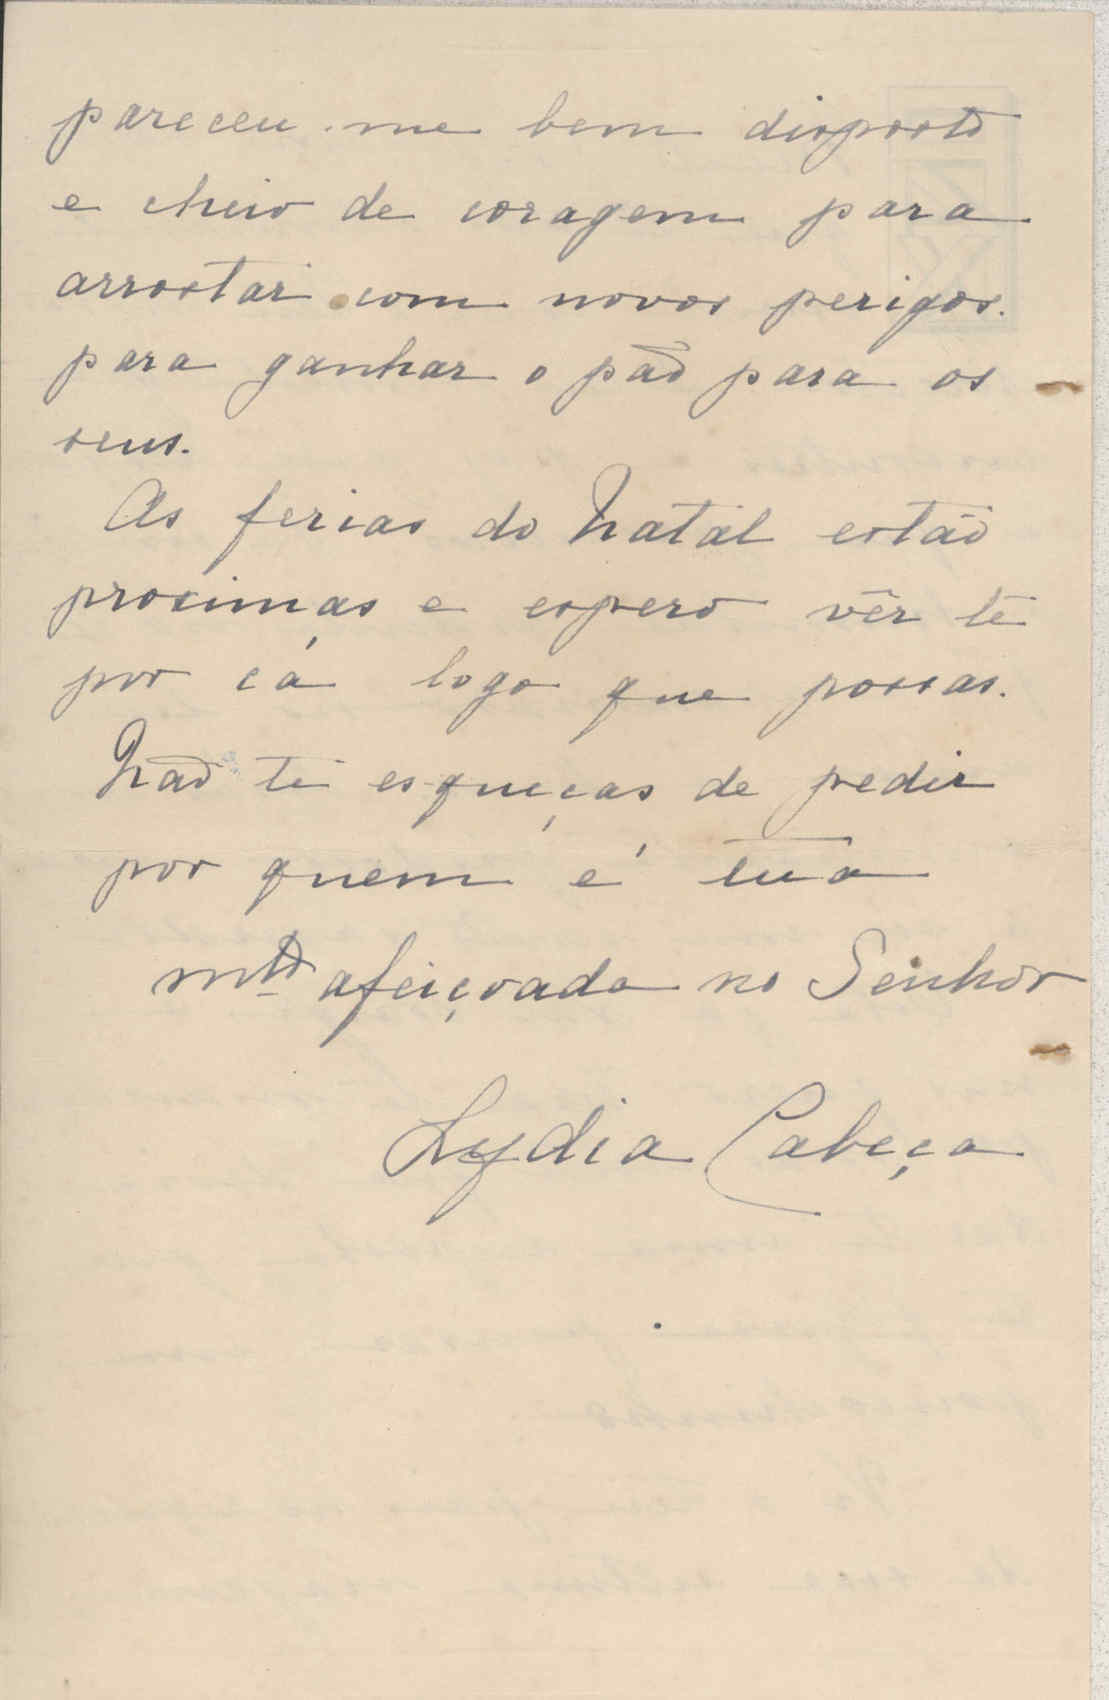 pareceu-me bem disposto
e cheio de coragem para
arrostar com novos perigos.
para ganhar o pão para os
seus.
As ferias do Natal estão
proximas e espero vêr te
por cá logo que possas.
Não te esqueças de pedir
por quem é tua
mtº afeiçoada no Senhor
Lydia Cabeça